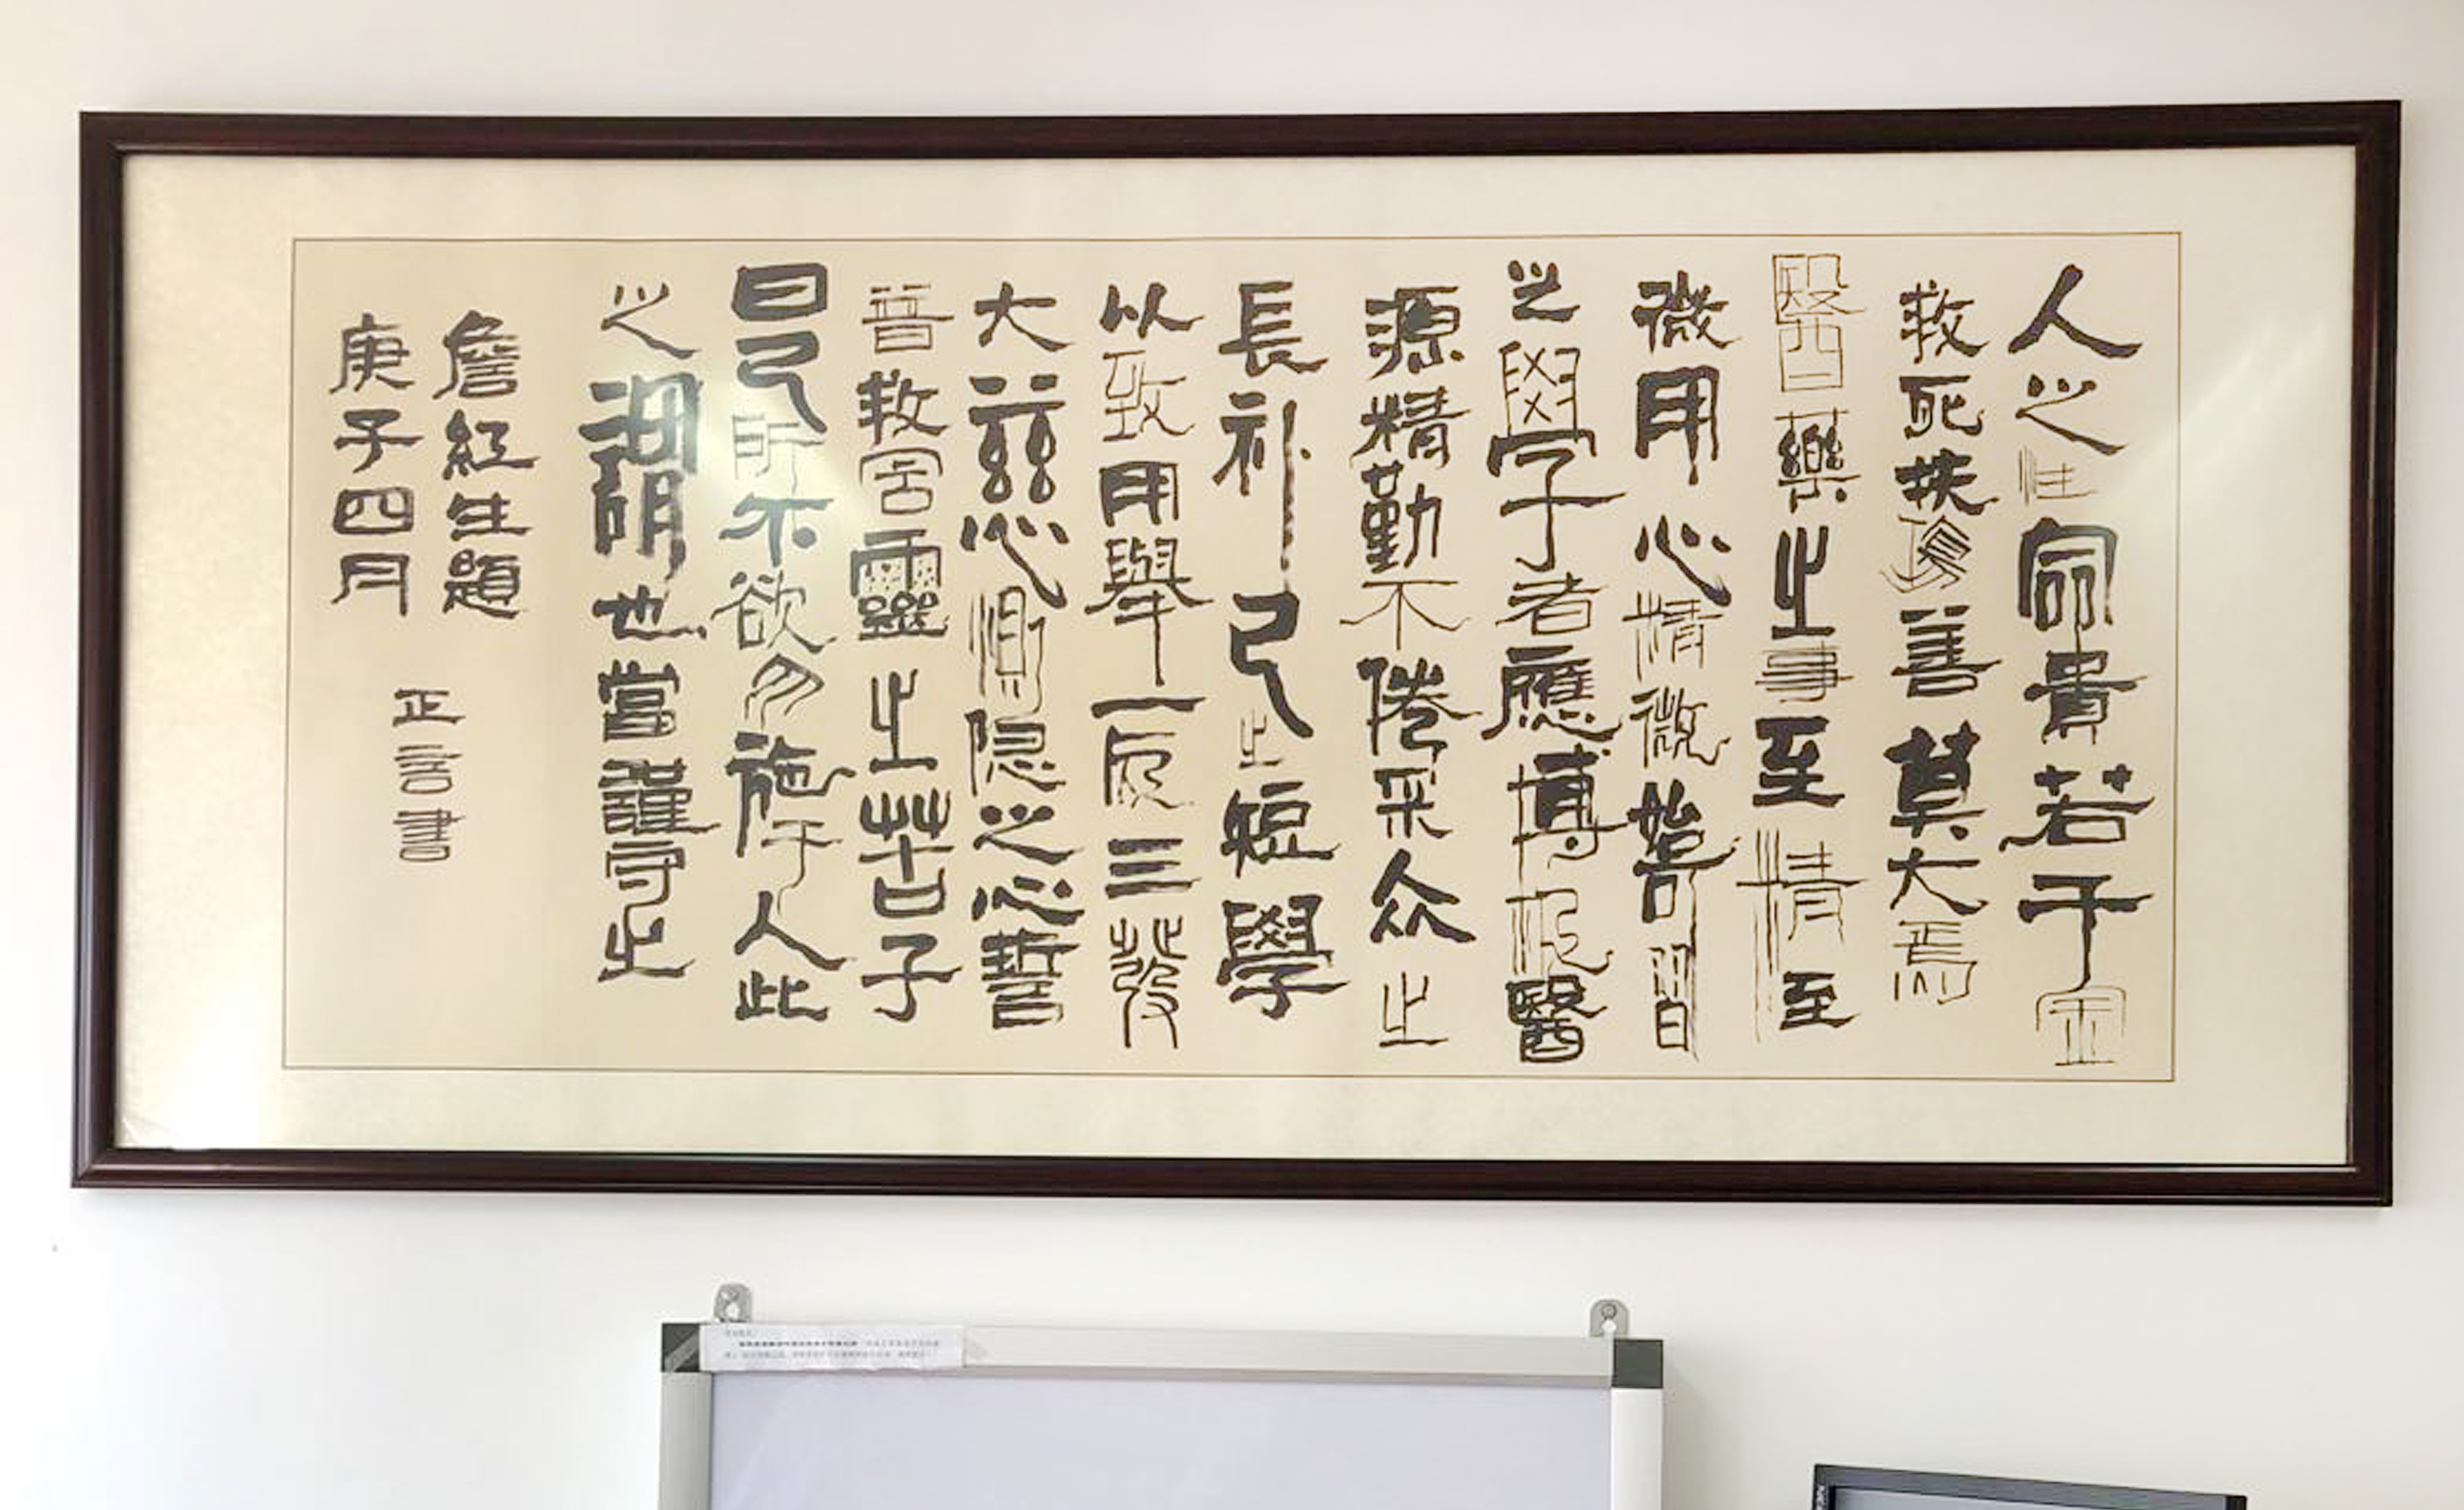 人之性命貴若千金
救死扶傷善莫大焉
醫藥之事至精至
微用心精微始可習
之學者應博極醫
源精勤不倦采众之
長补己之短學
以致用舉一反三發
大慈惻隐之心誓
普救含靈之苦子
曰己所不欲勿施于人此
之謂也當謹守之
詹紅生題
庚子四月
正言書